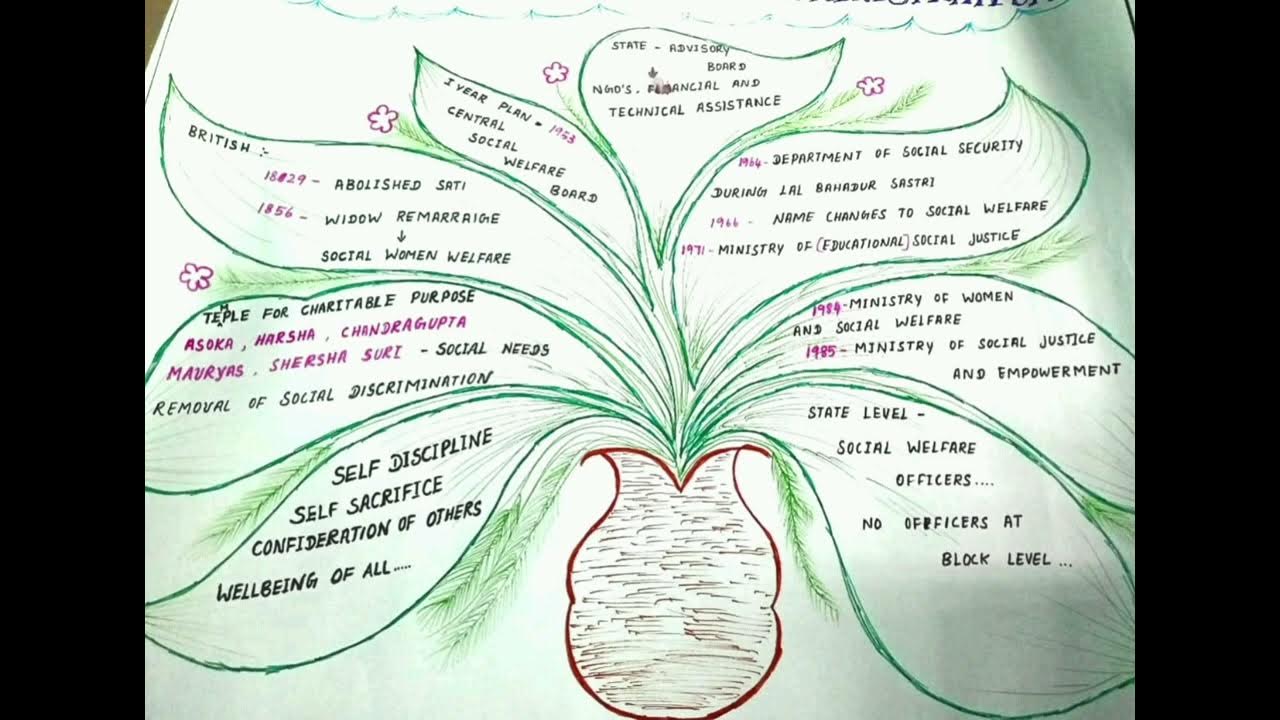 BRITISH :-
18829 - ABOLISHED SATI
1856 - WIDOW REMARRAIGE
↓
SOCIAL WOMEN WELFARE
I YEAR PLAN - 1953
CENTRAL
SOCIAL
WELFARE
BOARD
STATE - ADVISORY
BOARD
↓
NGO'S, FINANCIAL AND
TECHNICAL ASSISTANCE
1964 - DEPARTMENT OF SOCIAL SECURITY
DURING LAL BAHADUR SASTRI
1966 - NAME CHANGES TO SOCIAL WELFARE
1971 - MINISTRY OF [EDUCATIONAL] SOCIAL JUSTICE
TEMPLE FOR CHARITABLE PURPOSE
ASOKA, HARSHA, CHANDRAGUPTA
MAURYAS, SHERSHA SURI - SOCIAL NEEDS
REMOVAL OF SOCIAL DISCRIMINATION
1984 - MINISTRY OF WOMEN
AND SOCIAL WELFARE
1985 - MINISTRY OF SOCIAL JUSTICE
AND EMPOWERMENT
SELF DISCIPLINE
SELF SACRIFICE
CONFIDERATION OF OTHERS
WELLBEING OF ALL.....
STATE LEVEL -
SOCIAL WELFARE
OFFICERS....
NO OFFICERS AT
BLOCK LEVEL ...